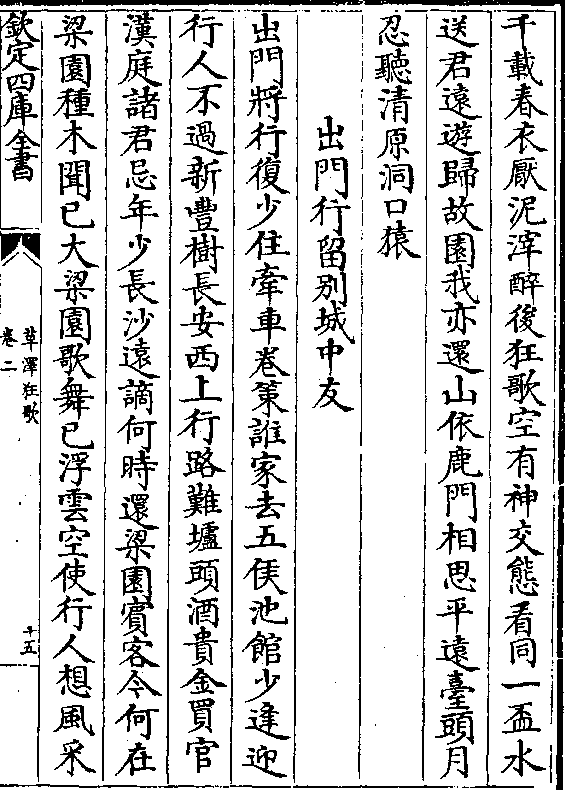 千載春衣厭泥滓醉後狂歌空有神交態看同一盃水
送君遠遊歸故園我亦還山依鹿門相思平遠臺頭月
忍聽清原洞口猿
出門行留別城中友
出門將行復少住牽車卷策誰家去五侯池館少逢迎
行人不過新豐樹長安西上行路難壚頭酒貴金買官
漢庭諸君忌年少長沙遠謫何時還梁園賓客今何在
梁園種木聞已大梁園歌舞已浮雲空使行人想風采
欽定四庫全書
草澤狂歌
卷二
十五